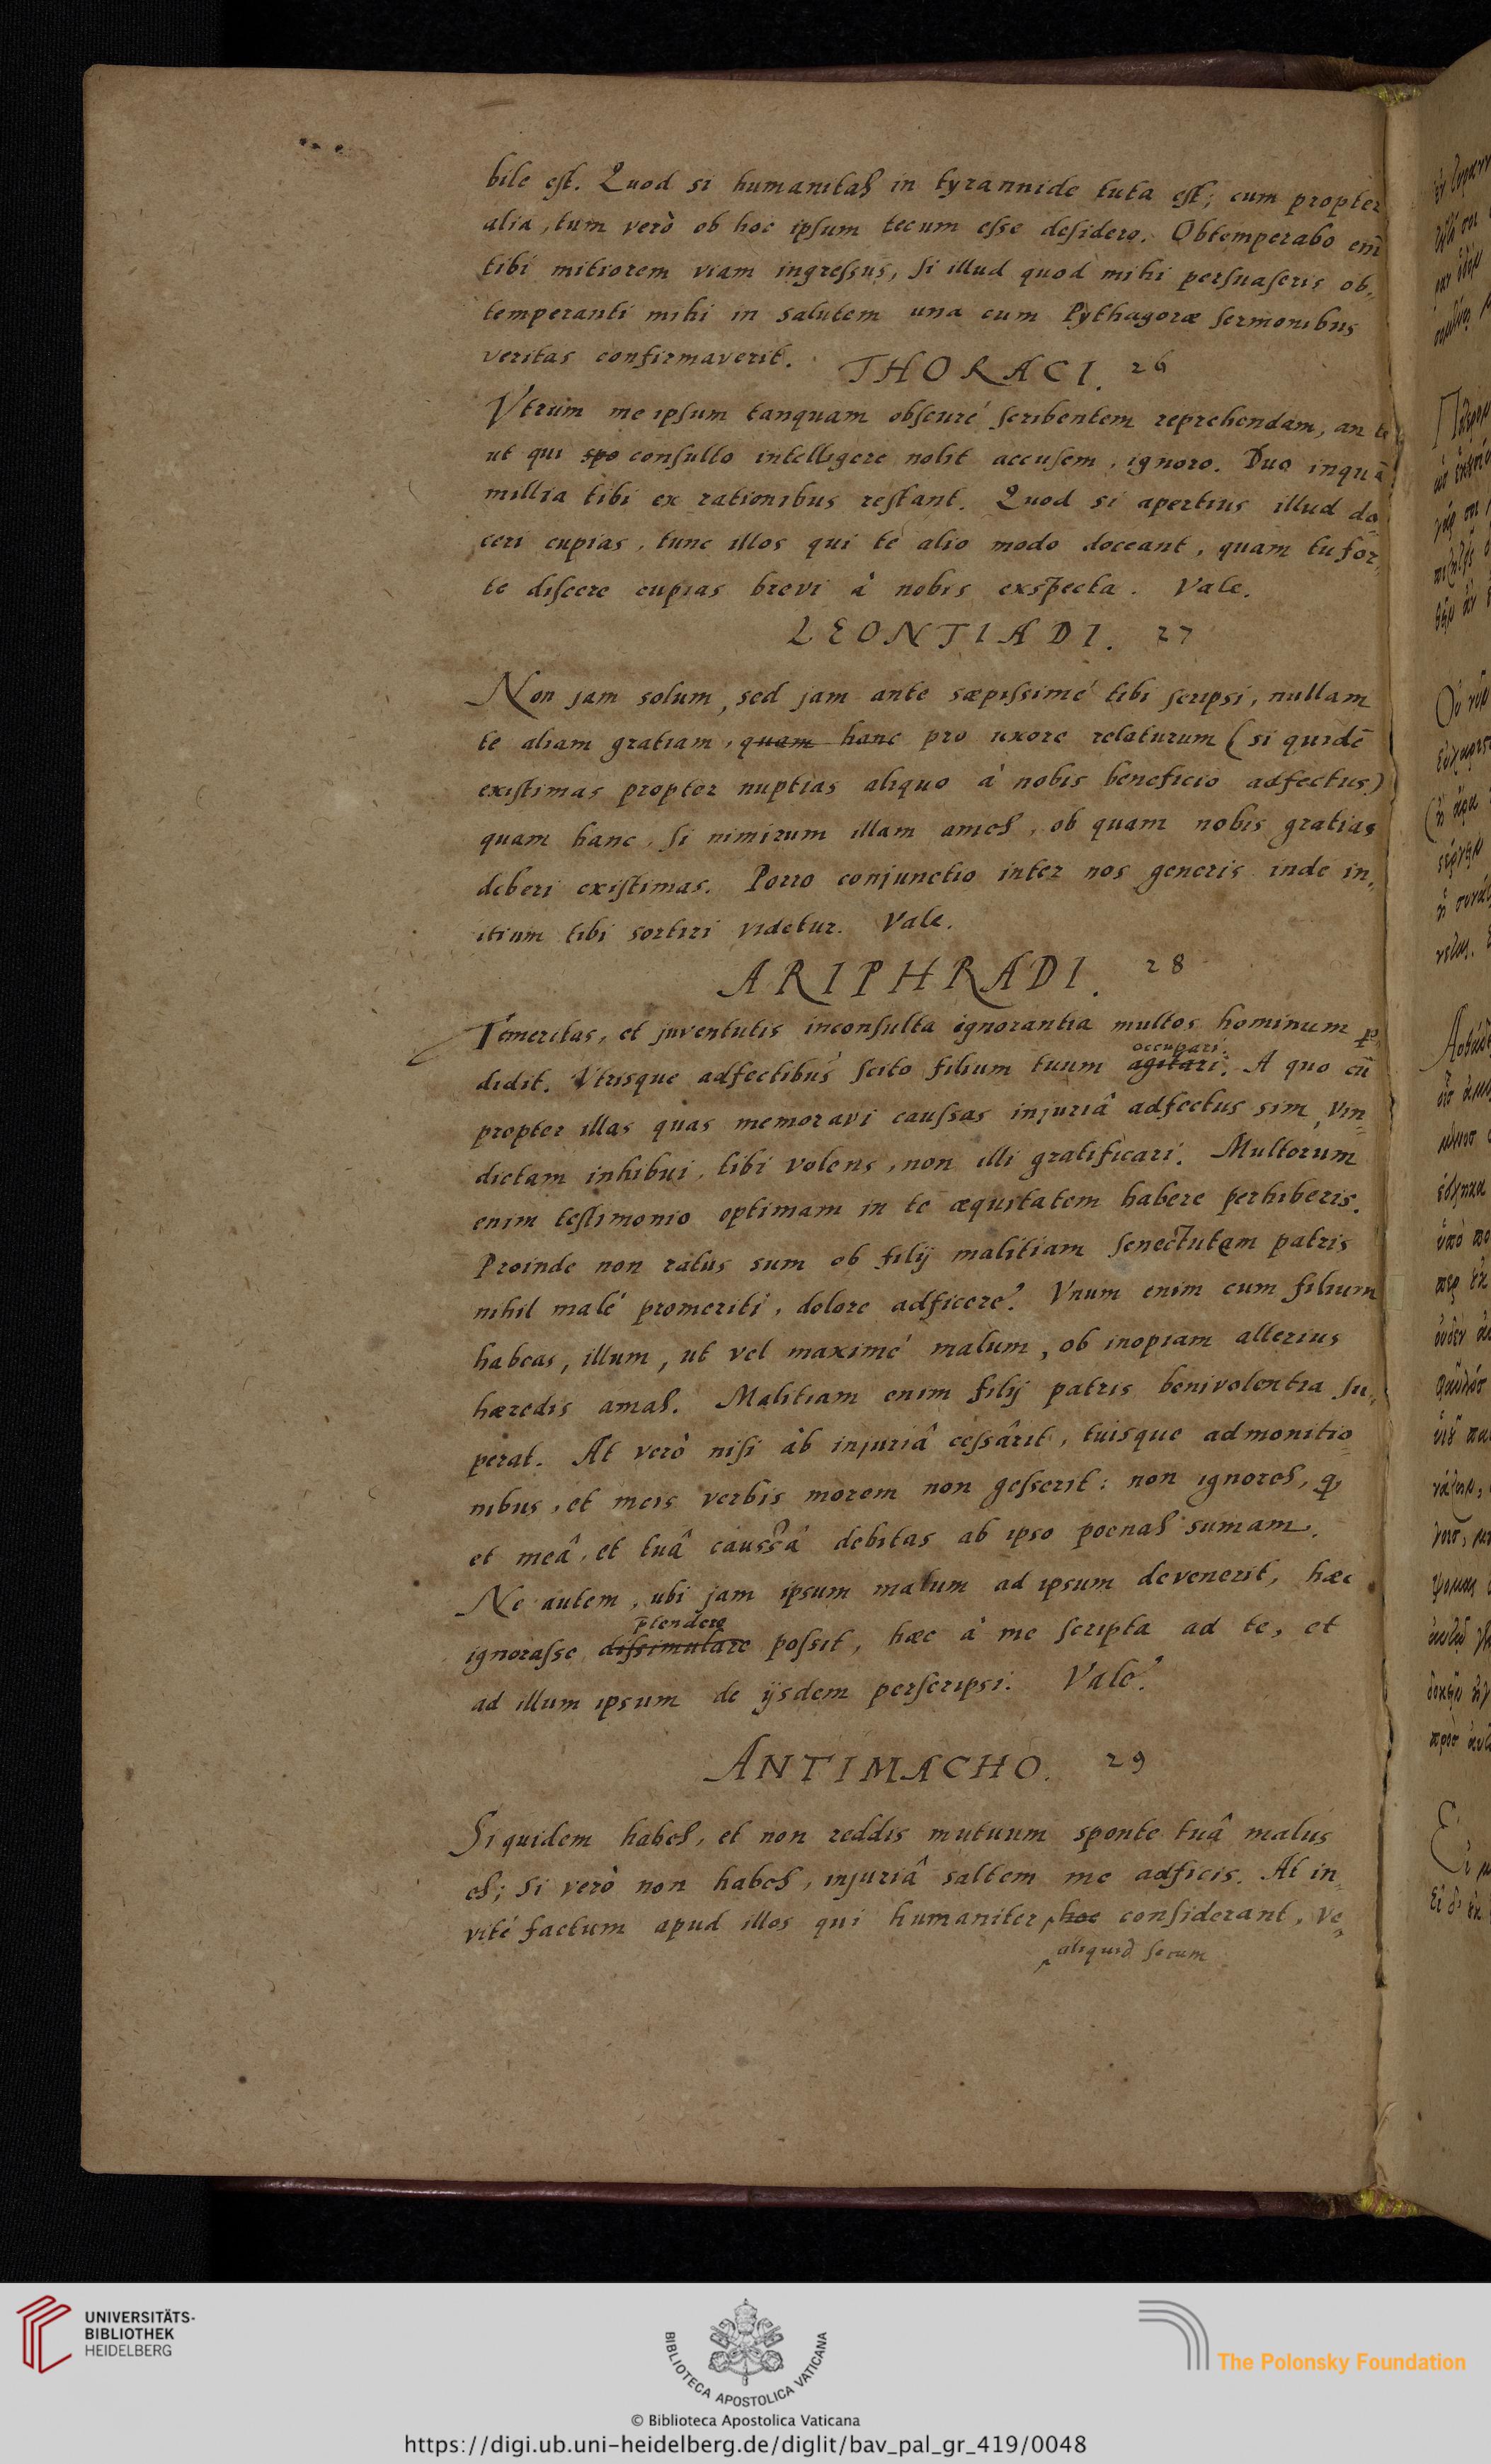 bile est. Quod si humanitas in tyrannide tuta est; cum propter
alia, tum verò ob hoc ipsum tecum esse desidero. Obtemperabo eni͂
tibi mitiorem viam ingressus, si illud quod mihi persuaseris ob,,
temperanti mihi in salutem una cum Pythagoræ sermonibus
veritas confirmaverit.
THORACI. 26
Vtrum me ipsum tanquam obscuré scribentem reprehendam, an te
ut qui spo consulto intelligere nolit accusem, ignoro. Duo inquā
millia tibi ex rationibus restant. Quod si apertius illud do
ceri cupias, tunc illos qui te alio modo doceant, quam tu for,,
te discere cupias brevi à nobis exspecta. Vale.
LEONTIADI. 27
Non jam solum, sed jam ante sæpissimé tibi scripsi, nullam
te aliam gratiam, quam hanc pro uxore relaturum (si quidē
existimas propter nuptias aliquo à nobis beneficio adfectus)
quam hanc, si nimirum illam ames, ob quam nobis gratias
deberi existimas. Porro conjunctio inter nos generis inde in,,
itium tibi sortiri videtur. Vale.
ARIPHRADI. 28
Temeritas, et juventutis inconsulta ignorantia multos hominum ꝑ,,
occupari.
didit. Vtrisque adfectibus scito filium tuum agitari. A quo cū
propter illas quas memoravi caussas injuriâ adfectus sim, vin,,
dictam inhibui, tibi volens, non illi gratificari. Multorum
enim testimonio optimam in te æquitatem habere perhiberis.
Proinde non ratus sum ob filij malitiam senectutem patris
nihil malé promeriti, dolore adficere. Vnum enim cum filium
habeas, illum, ut vel maximé malum, ob inopiam alterius
hæredis amas. Malitiam enim filij patris benivolentia su,,
perat. At verò nisi ab injuriâ cessârit, tuisque admonitio
nibus, et meis verbis morem non gesserit: non ignores,
et meâ, et tuâ caussâ debitas ab ipso poenas sumam.
Ne autem, ubi jam ipsum malum ad ipsum devenerit, hæc
ignorasse dissimulare possit, hæc à me scripta ad te, et
ad illum ipsum de ijsdem perscripsi. Vale.
ANTIMACHO. 29
Siquidem habes, et non reddis mutuum sponte tuâ malus
es; si verò non habes, injuriâ saltem me adficis. At in,,
vité factum apud illos qui humaniter hoc considerant, ve,,
aliquid secum
UNIVERSITÄTS-
BIBLIOTHEK
HEIDELBERG
BIBLIOTECA APOSTOLICA VATICANA
The Polonsky Foundation
© Biblioteca Apostolica Vaticana
https://digi.ub.uni-heidelberg.de/diglit/bav_pal_gr_419/0048